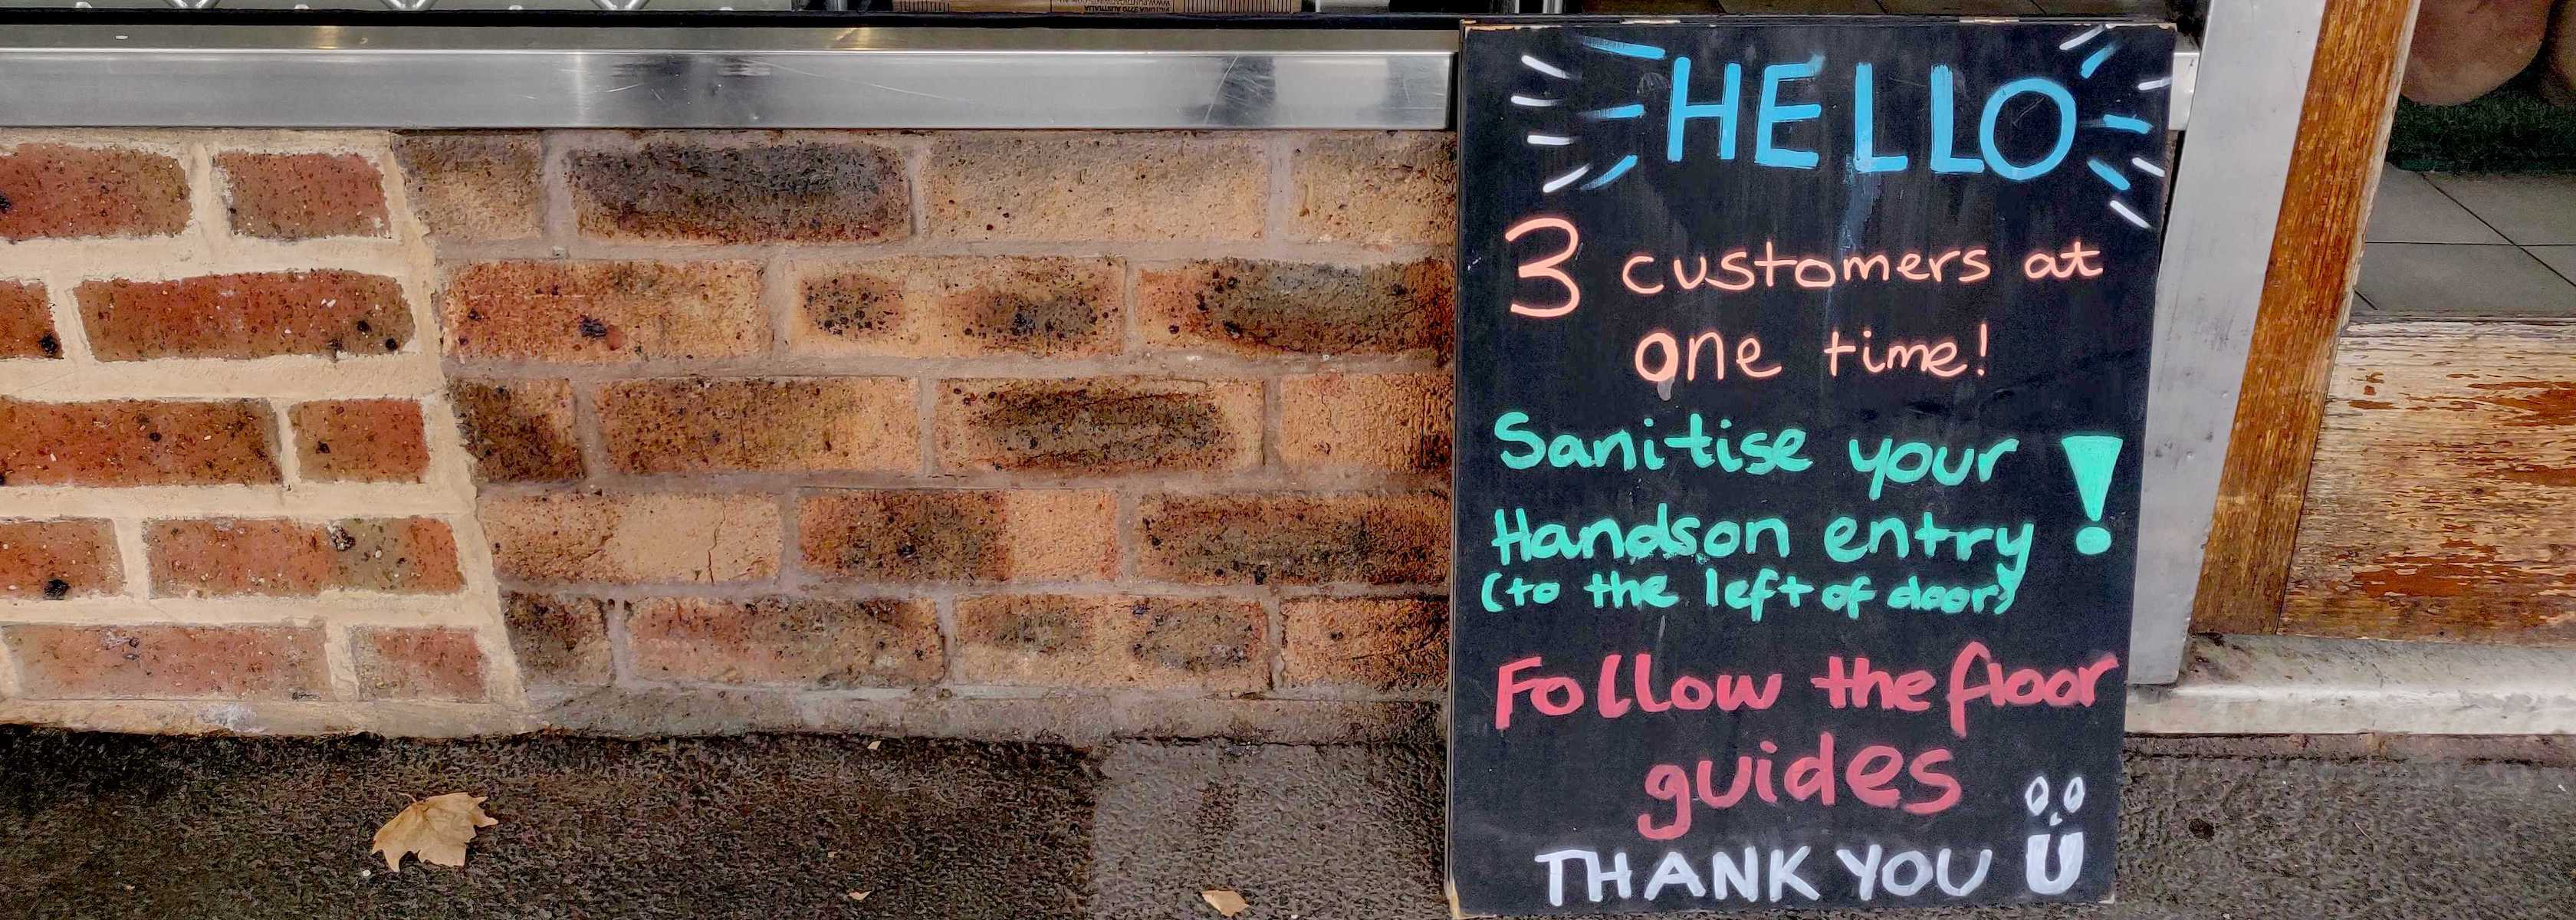 HELLO
3 customers at
one time!
Sanitise your
Handson entry!
(to the left of door)
Follow the floor
guides
THANK YOU